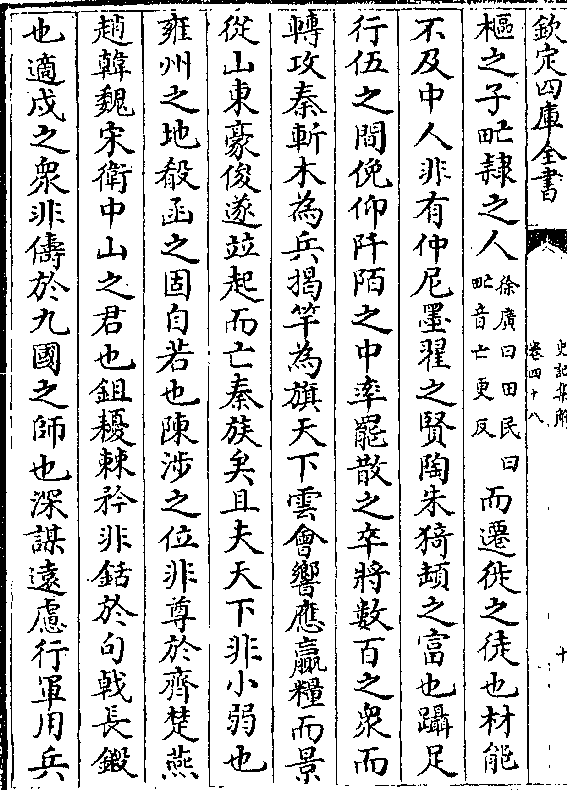 欽定四庫全書
史記集解
卷四十八
十
樞之子甿隸之人徐廣曰田民曰甿音亡更反而遷徙之徒也材能
不及中人非有仲尼墨翟之賢陶朱猗頓之富也躡足
行伍之間俛仰阡陌之中率罷散之卒將數百之衆而
轉攻秦斬木為兵揭竿為旗天下雲會響應贏糧而景
從山東豪俊遂竝起而亡秦族矣且夫天下非小弱也
雍州之地殽函之固自若也陳涉之位非尊於齊楚燕
趙韓魏宋衛中山之君也鉏耰棘矜非銛於句戟長鎩
也適戍之衆非儔於九國之師也深謀遠慮行軍用兵